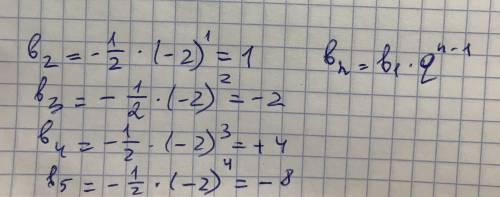 b₂ = -1/2 · (-2)¹ = 1
bₙ = b₁ · qⁿ⁻¹
b₃ = -1/2 · (-2)² = -2
b₄ = -1/2 · (-2)³ = +4
b₅ = -1/2 · (-2)⁴ = -8